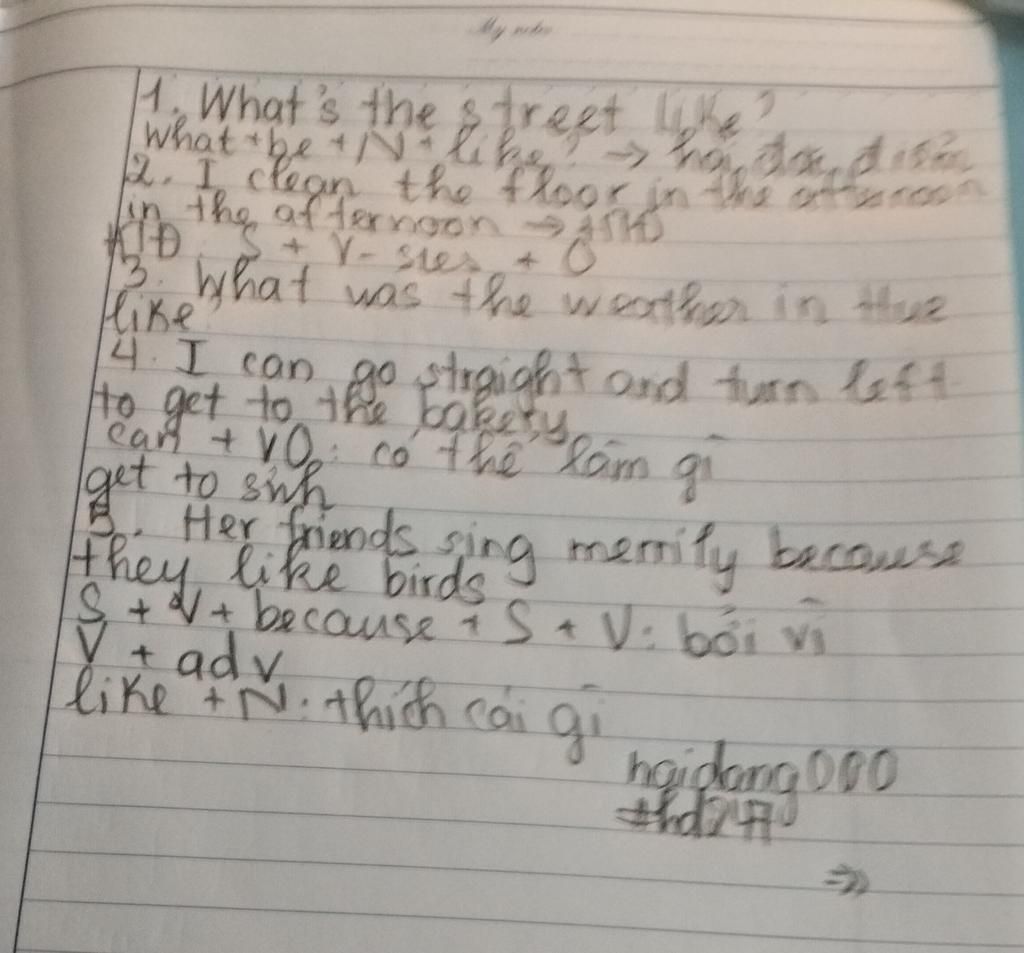 My notes
1. What's the street like?
What + be + N + like? → hỏi đặc điểm
2. I clean the floor in the afternoon
in the afternoon →
HTĐ: S + V-s/es + O
3. What was the weather in Hue
like?
4. I can go straight and turn left
to get to the bakery
can + VO: có thể làm gì
get to swh
5. Her friends sing merrily because
they like birds
S + V + because + S + V: bởi vì
V + adv
like + N: thích cái gì
haidang000
#hd247
⇒